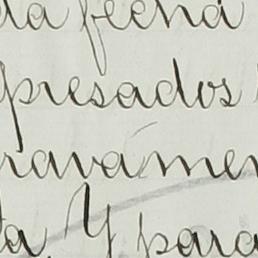 la fecha
presados
ravámen
ta. Y para